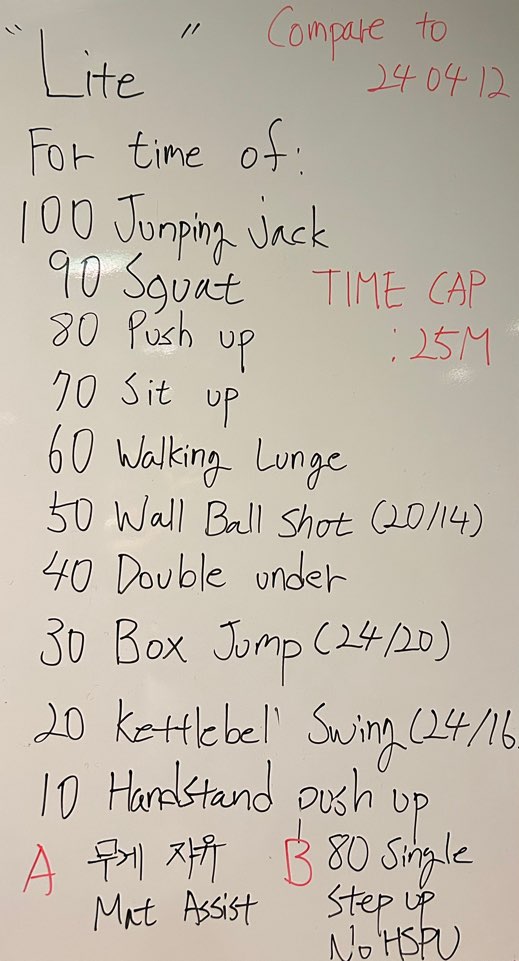 "Lite"
Compare to
24 04 12
For time of:
100 Jumping jack
90 Squat
TIME CAP
: 25M
80 Push up
70 Sit up
60 Walking Lunge
50 Wall Ball Shot (20/14)
40 Double under
30 Box Jump (24/20)
20 Kettlebell Swing (24/16
10 Handstand push up
A 무게 자유
Mat Assist
B 80 Single
Step up
No HSPU